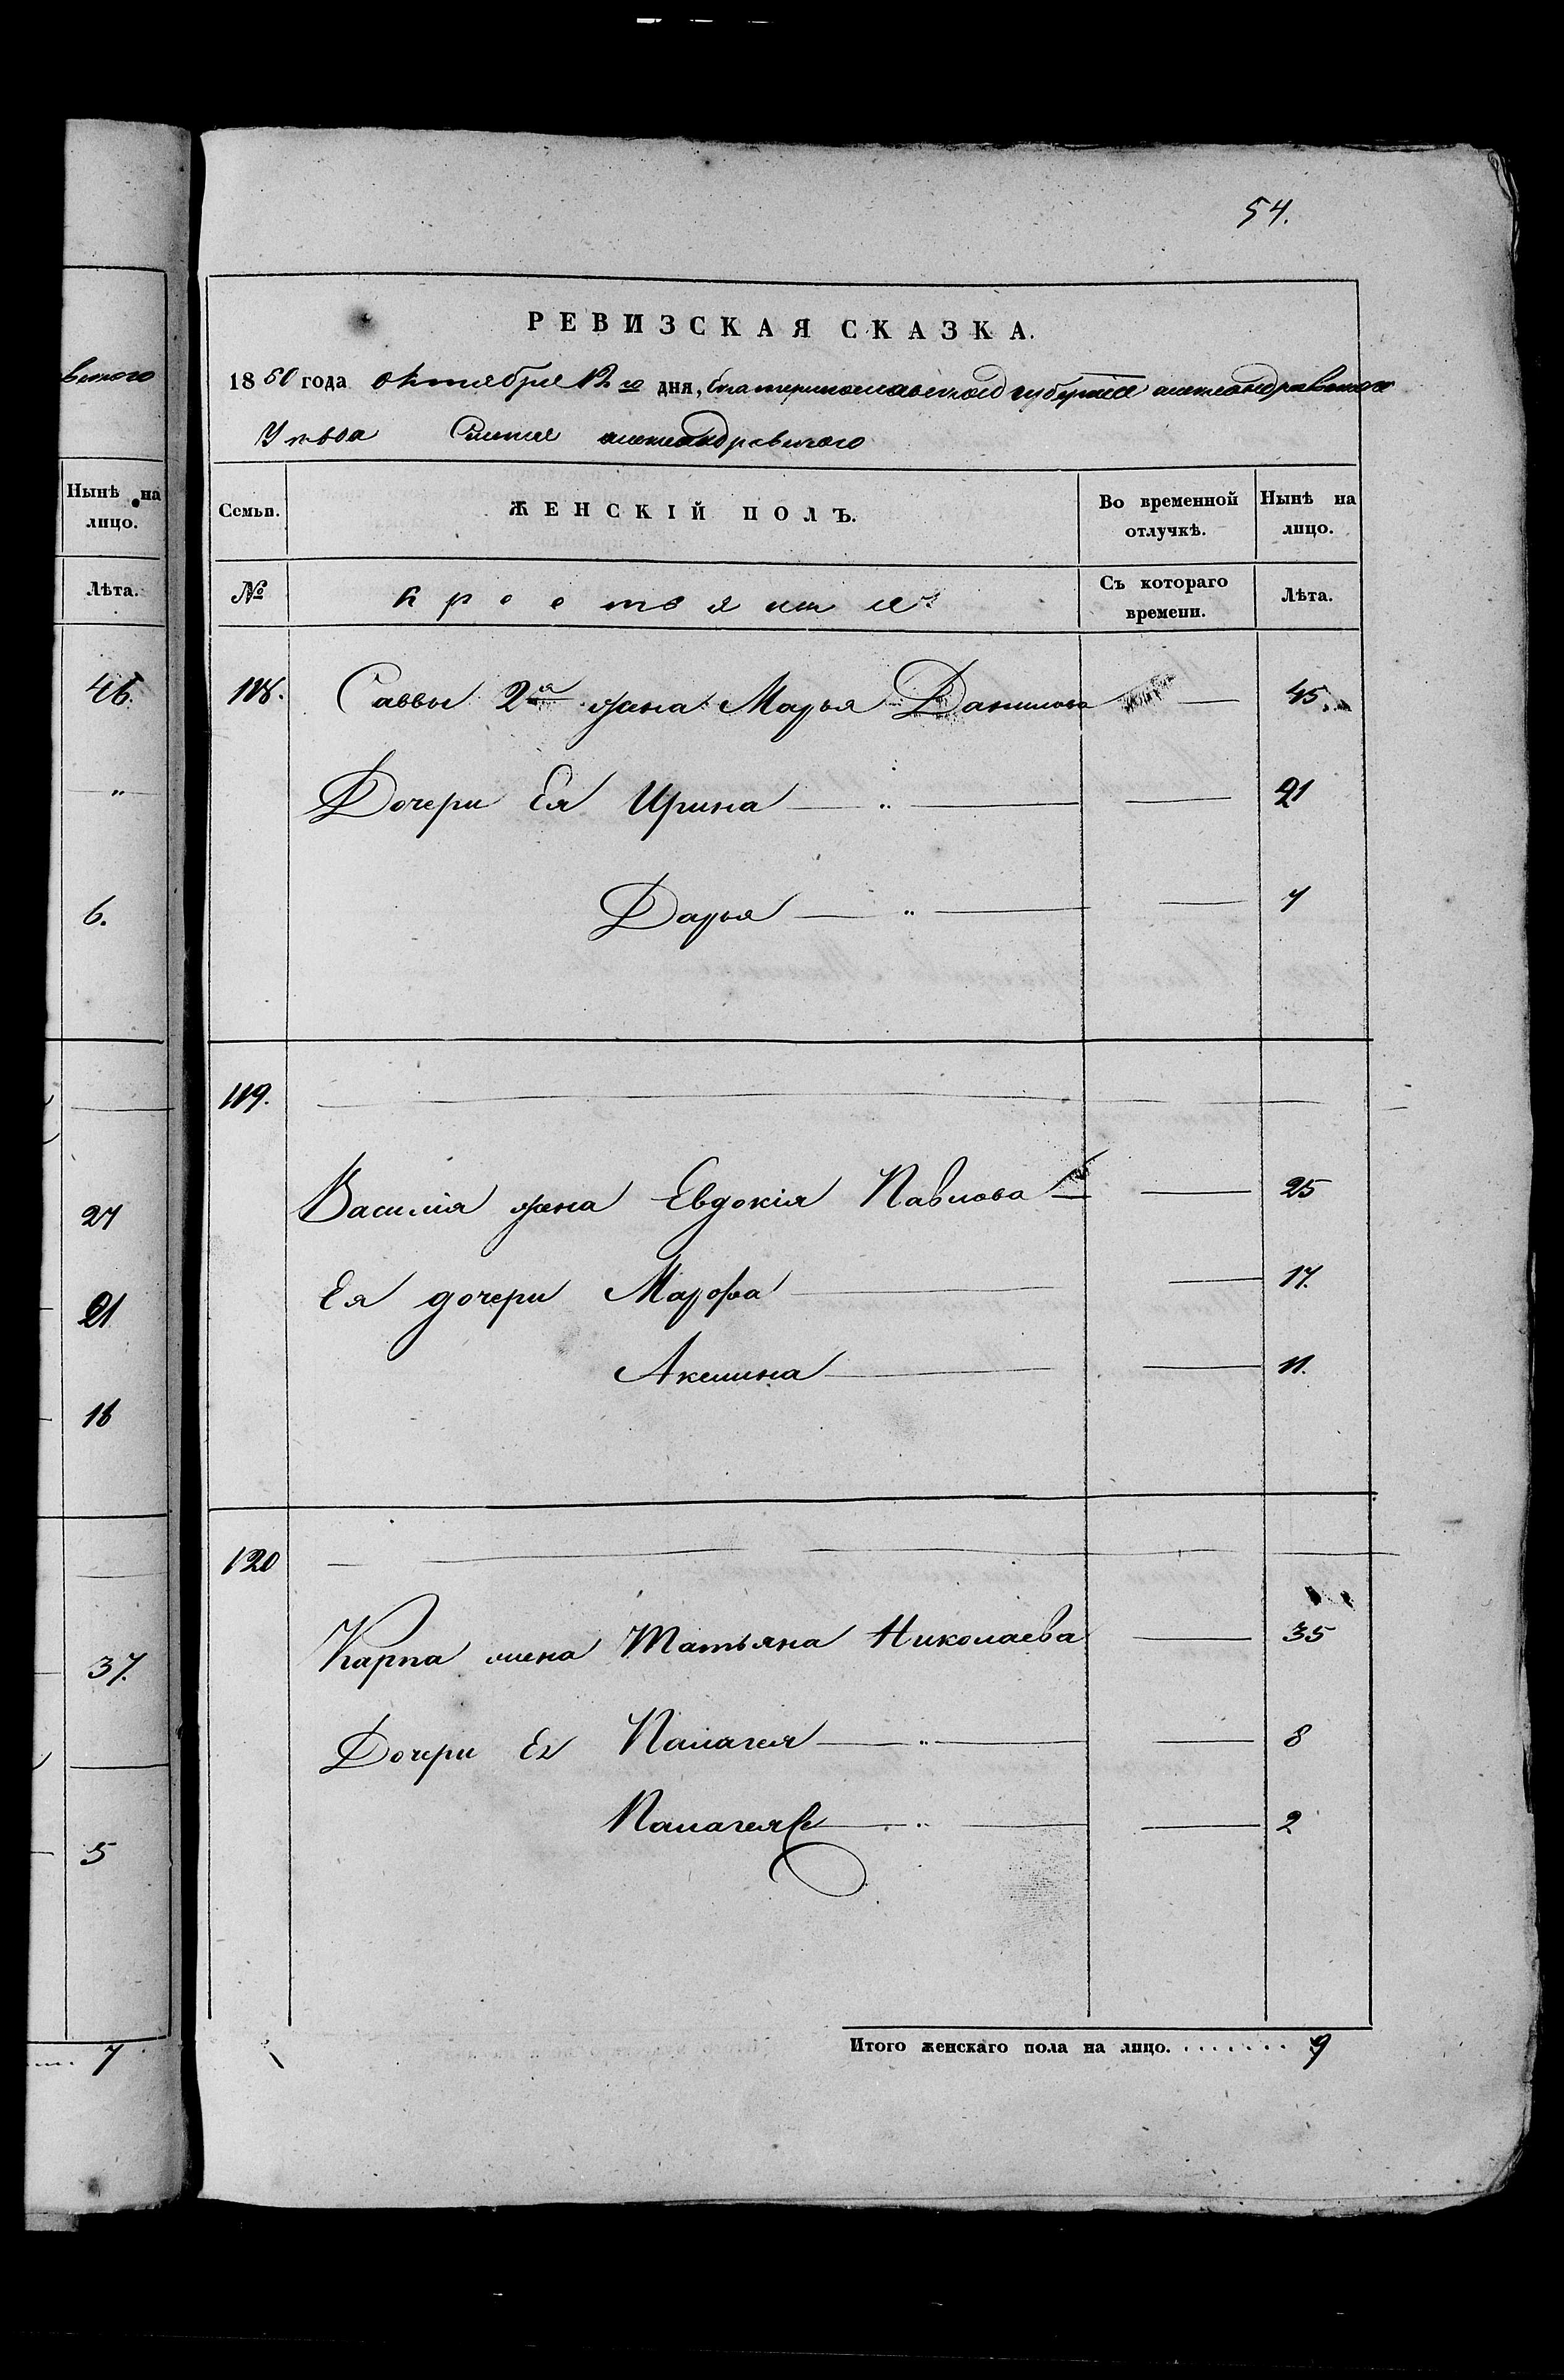 вского
Нынѣ на
лицо.
Лѣта.
46.
"
6.
27
21
18
37.
5
7
54.
РЕВИЗСКАЯ СКАЗКА.
1850 года октября 12го дня, Екатеринославской губернии александровского
Уѣзда Селения александровского
Семьи. ЖЕНСКІЙ ПОЛЪ. Во временной отлучкѣ. Нынѣ на лицо.
№ крестьяне Съ котораго времени. Лѣта.
118. Саввы 2я жена Марья Данилова — 45
Дочери Ея Ирина — " — — 21
Дарья — " — — 7
119.
Василія жена Евдокія Павлова — 25
Ея дочери Марфа — — 17.
Акилина — — 11.
120
Карпа жена Татьяна Николаева — 35
Дочери Ея Палагея — " — — 8
Палагея — " — — 2
Итого женскаго пола на лицо. . . . . . . . 9